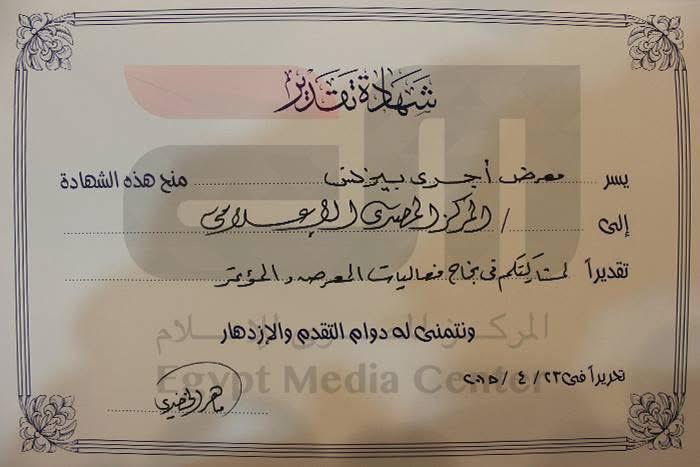 شهادة تقدير
يسر معرض أجرى بيزنس منح هذه الشهادة
إلى / المركز المصرى الإعلامى
تقديراً لمشاركتكم فى نجاح فعاليات المعرض والمؤتمر
المركز المصرى للإعلام
ونتمنى له دوام التقدم والإزدهار
Egypt Media Center
تحريراً فى ٢٣ / ٤ / ٢٠١٥
ماهر الخضيرى